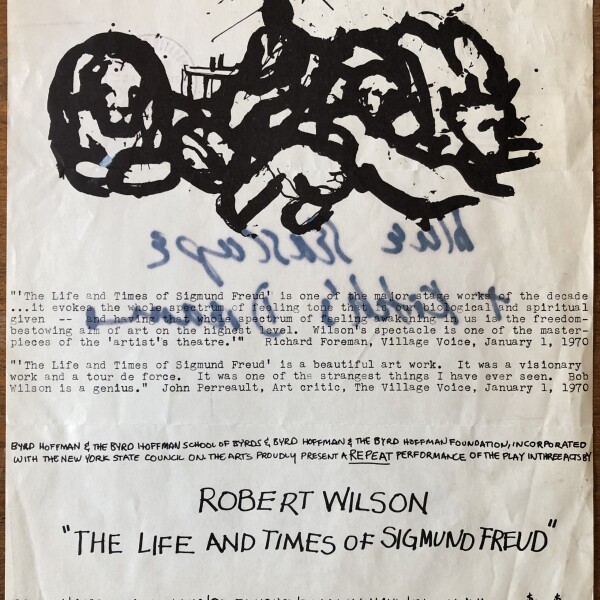 blue Seascape
"'The Life and Times of Sigmund Freud' is one of the major stage works of the decade
...it evokes the whole spectrum of feeling tone that is our biological and spiritual
given -- and having that whole spectrum of feeling awakening in us is the freedom-
bestowing aim of art on the highest level. Wilson's spectacle is one of the master-
pieces of the 'artist's theatre.'" Richard Foreman, Village Voice, January 1, 1970
"'The Life and Times of Sigmund Freud' is a beautiful art work. It was a visionary
work and a tour de force. It was one of the strangest things I have ever seen. Bob
Wilson is a genius." John Perreault, Art critic, The Village Voice, January 1, 1970
BYRD HOFFMAN & THE BYRD HOFFMAN SCHOOL OF BYRDS &, BYRD HOFFMAN & THE BYRD HOFFMAN FOUNDATION, INCORPORATED
WITH THE NEW YORK STATE COUNCIL ON THE ARTS PROUDLY PRESENT A REPEAT PERFORMANCE OF THE PLAY IN THREE ACTS BY
ROBERT WILSON
"THE LIFE AND TIMES OF SIGMUND FREUD"